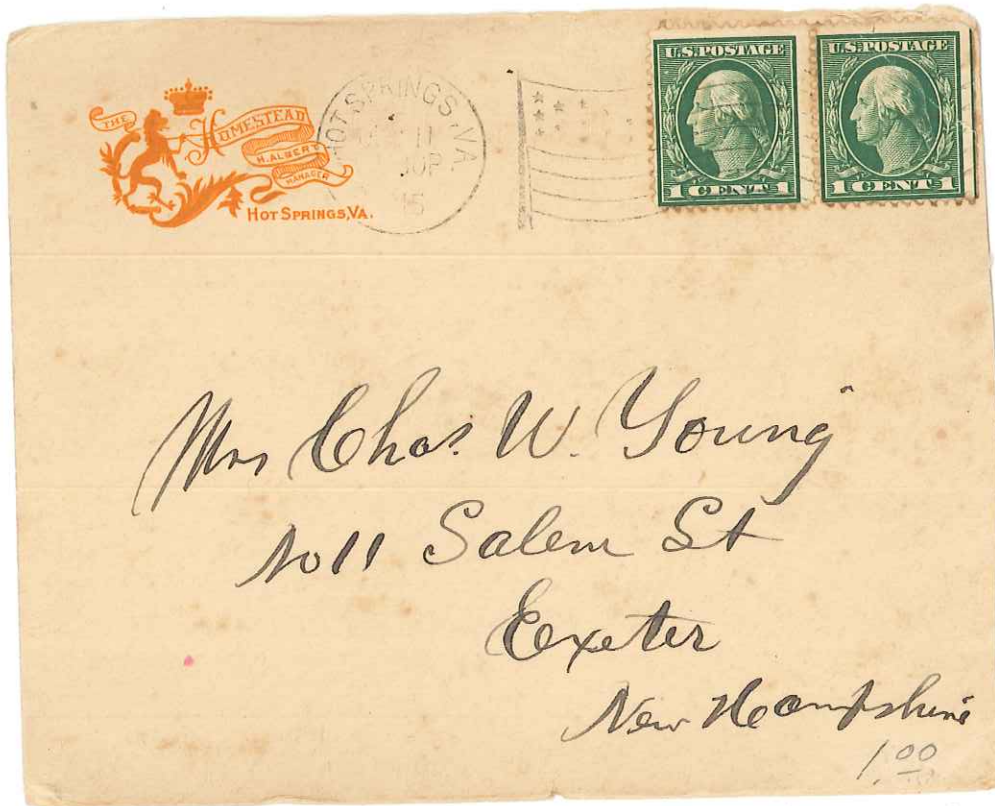 THE
HOMESTEAD
H. ALBERT
MANAGER
HOT SPRINGS, VA.
HOT SPRINGS, VA.
11
30P
15
U.S. POSTAGE
1 CENT 1
U.S. POSTAGE
1 CENT 1
Mrs Chas. W. Young
No 11 Salem St
Exeter
New Hampshire
1.00